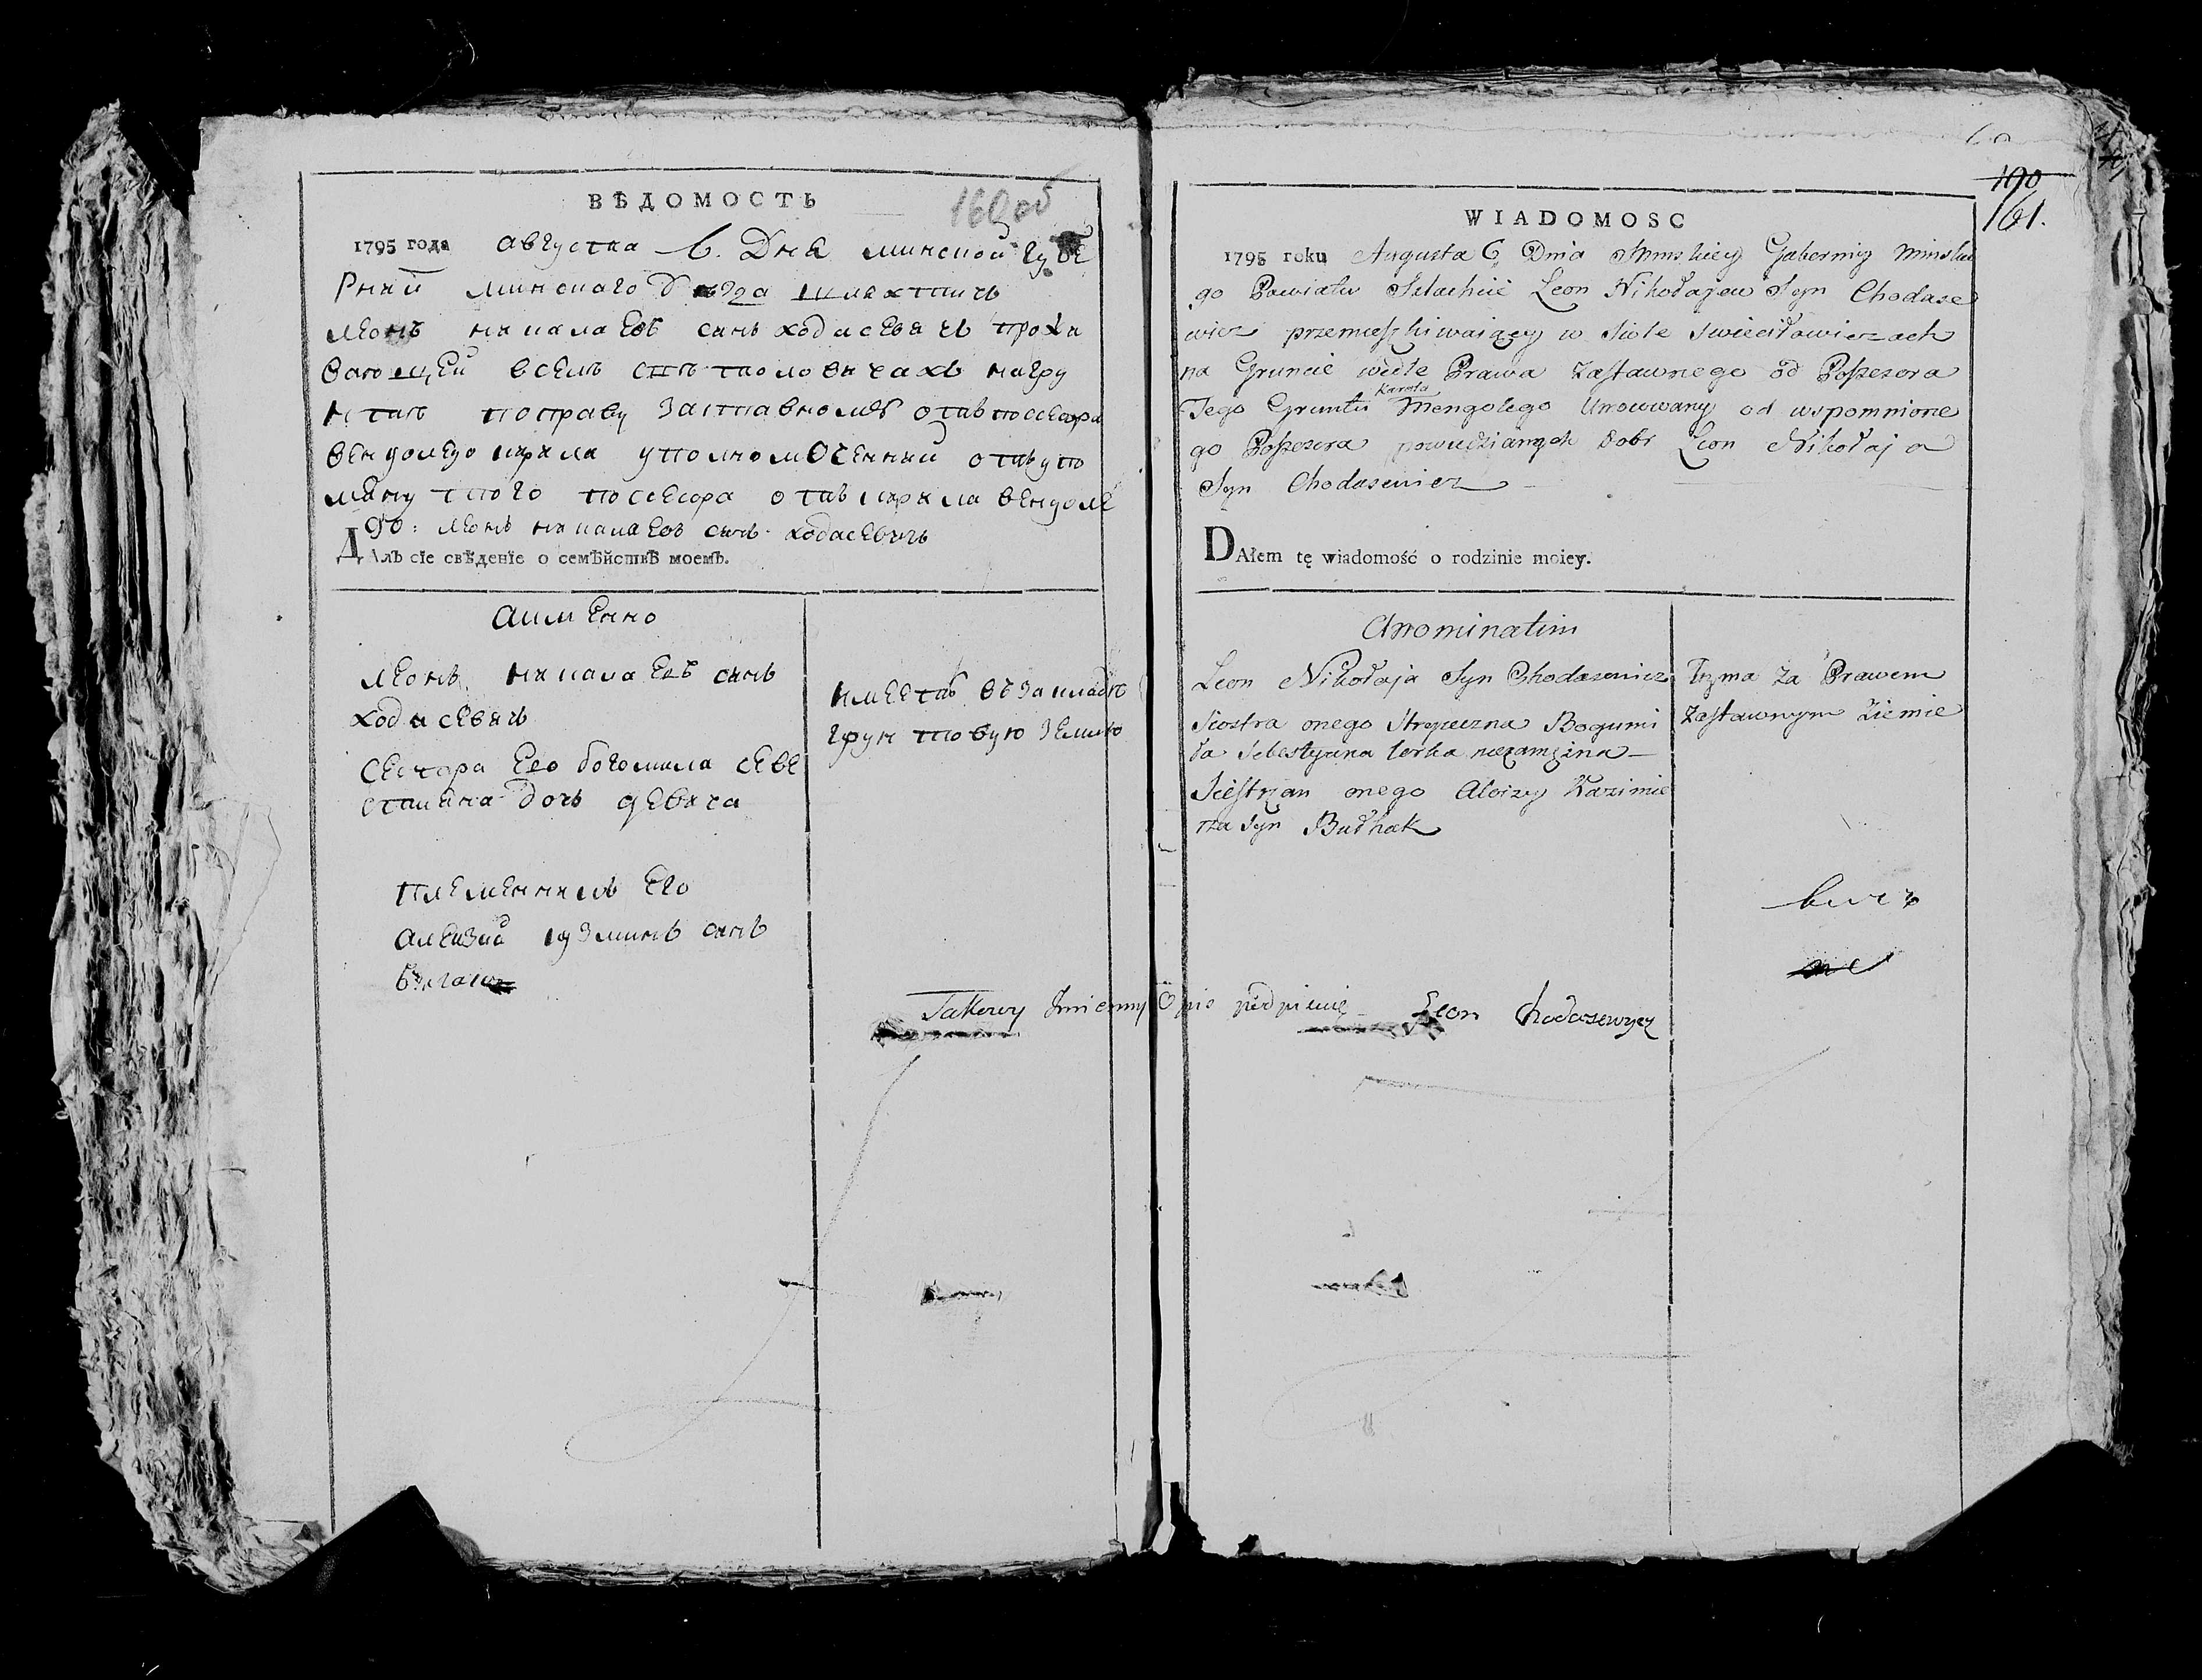 ВѢДОМОСТЬ
160 об
1795 года августа 6. Дня минской губе
рнии минскаго уезда шляхтичь
леонъ николаевъ синъ ходасевичь прожи
вающей вселѣ
нтаѣ поправу заставному отъ поссесора
вендолего кярла уполномоченний отъ упо
мянутого поссесора отъ кярла вендоле
го: леонъ николаевъ синъ ходасевичь
Далъ сіе свѣденіе о семѣйствѣ моемъ.
а имЕнно
леонъ николаевъ синъ
ходасевичь
сестра его богомила севе
стияна дочь девича
племенникъ его
алеизий кузминъ синъ
имеетъ въ закладю
грунтовую землю
190
161.
WIADOMOSC
1795 roku Augusta 6 Dnia Minskiey Gubernij Minskie
go Powiatu Szlachcic Leon Nikołajew Syn Chodase
wicz przemieszkiwaiący w Siole Swieciłowiczach
na Gruncie wedle Prawa Zastawnego od Possesora
Tego Gruntu Karola Mengolego Umocowany od wspomnione
go Possesora powiedzianych Dobr Leon Nikołaja
Syn Chodasewicz
DAłem tę wiadomość o rodzinie moiey.
Anominatim
Leon Nikołaja Syn Chodasewicz
Siostra onego Stryieczna Bogumi
ła Sebestyana Corka niezamężna
Siestrzan onego Aloizy Kazimie
rza Syn Bułhak
Trzyma Za Prawem
Zastawnym Ziemie
Takowy Imienny Opis podpisuię Leon Chodasewycz